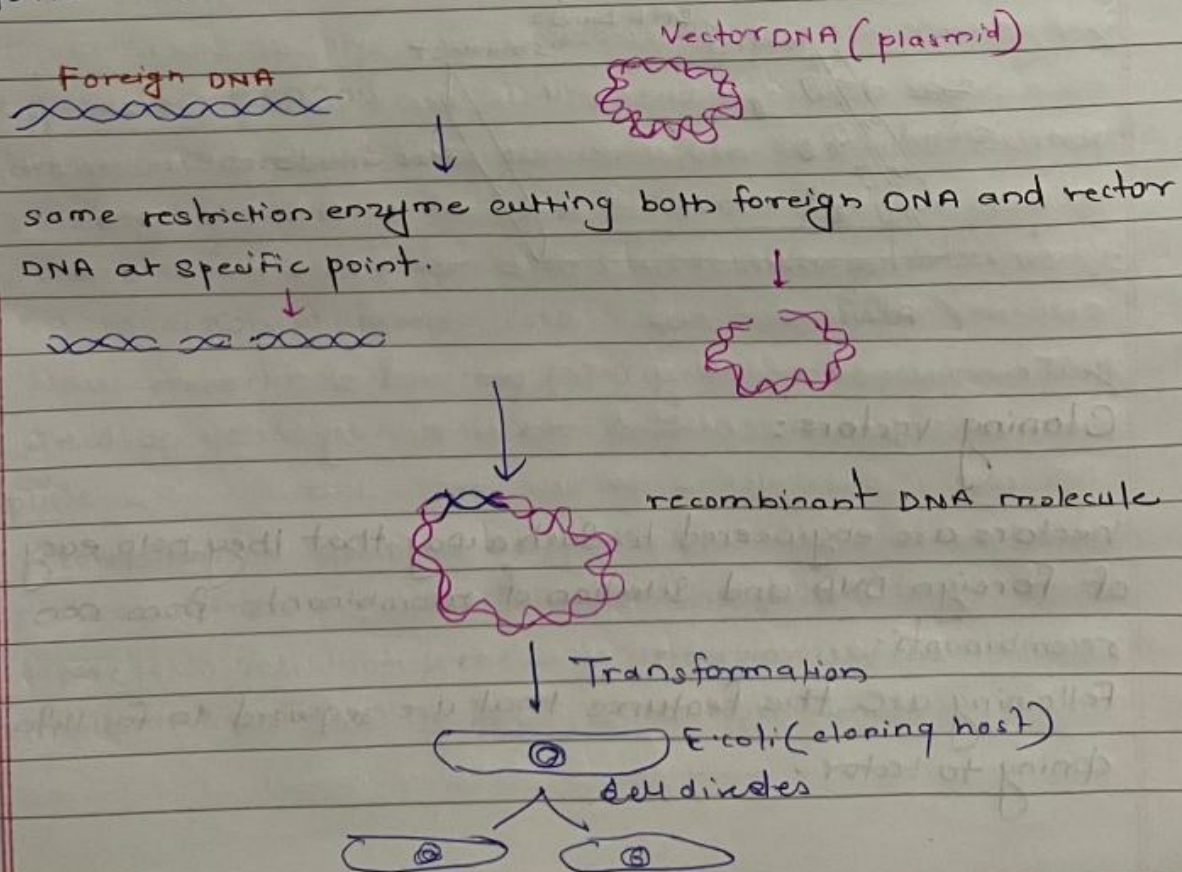 Vector DNA (plasmid)
Foreign DNA
same restriction enzyme cutting both foreign DNA and vector
DNA at specific point.
recombinant DNA molecule
Transformation
E.coli (cloning host)
cell divides